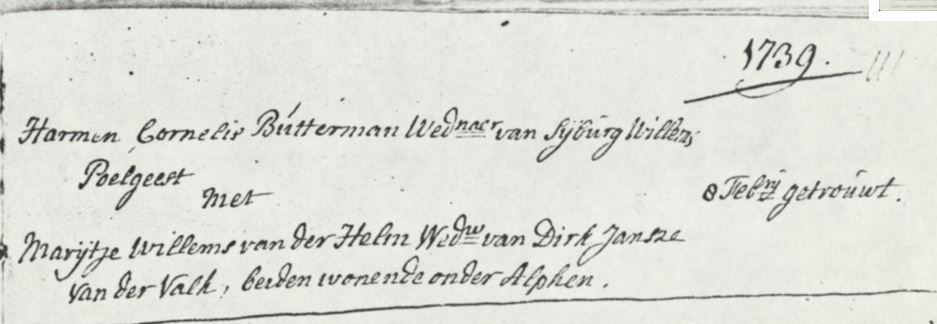 1739.
Harmen Cornelis Butterman Wednaer van Sijburg Willems
Poelgeest
met
8 Febrij getrouwt.
Marijtje Willems van der Helm Wedw van Dirk Jansze
van der Valk, beiden wonende onder Alphen.